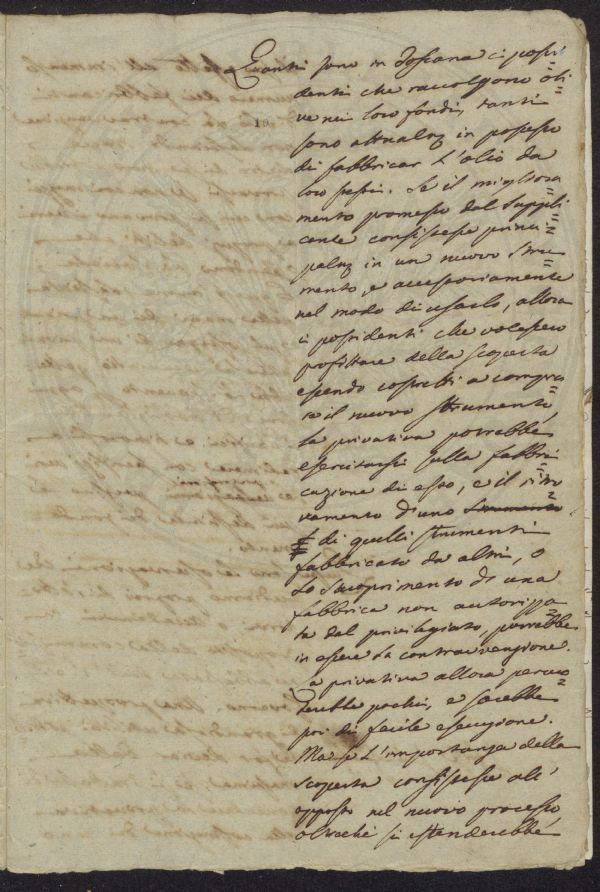 Quanti sono in Toscana i possi=
denti che raccolgono oli=
ve nei loro fondi, tanti
sono attualmz in possesso
di fabbricar l'olio da
loro stessi. Se il migliora=
mento promesso dal suppli=
cante consistesse princi=
palmz in un nuovo stru=
mento, e accessoriamente
nel modo di usarlo, allora
i possidenti che volessero
profittare della scoperta
essendo costretti a compra=
re il nuovo strumento,
la privativa potrebbe
esercitarsi sulla fabbri=
cazione di esso, e il ritro=
vamento d'uno strumento
# di quelli strumenti
fabbricato da altri, o
lo scuoprimento di una
fabbrica non autorizza=
ta dal privilegiato, potrebbe
in essere la contravvenzione.
La privativa allora percuo=
terebbe pochi, e sarebbe
poi di facile esecuzione.
Ma se l'importanza della
scoperta consistesse all'
opposto nel nuovo processo
oltreché si estenderebbe